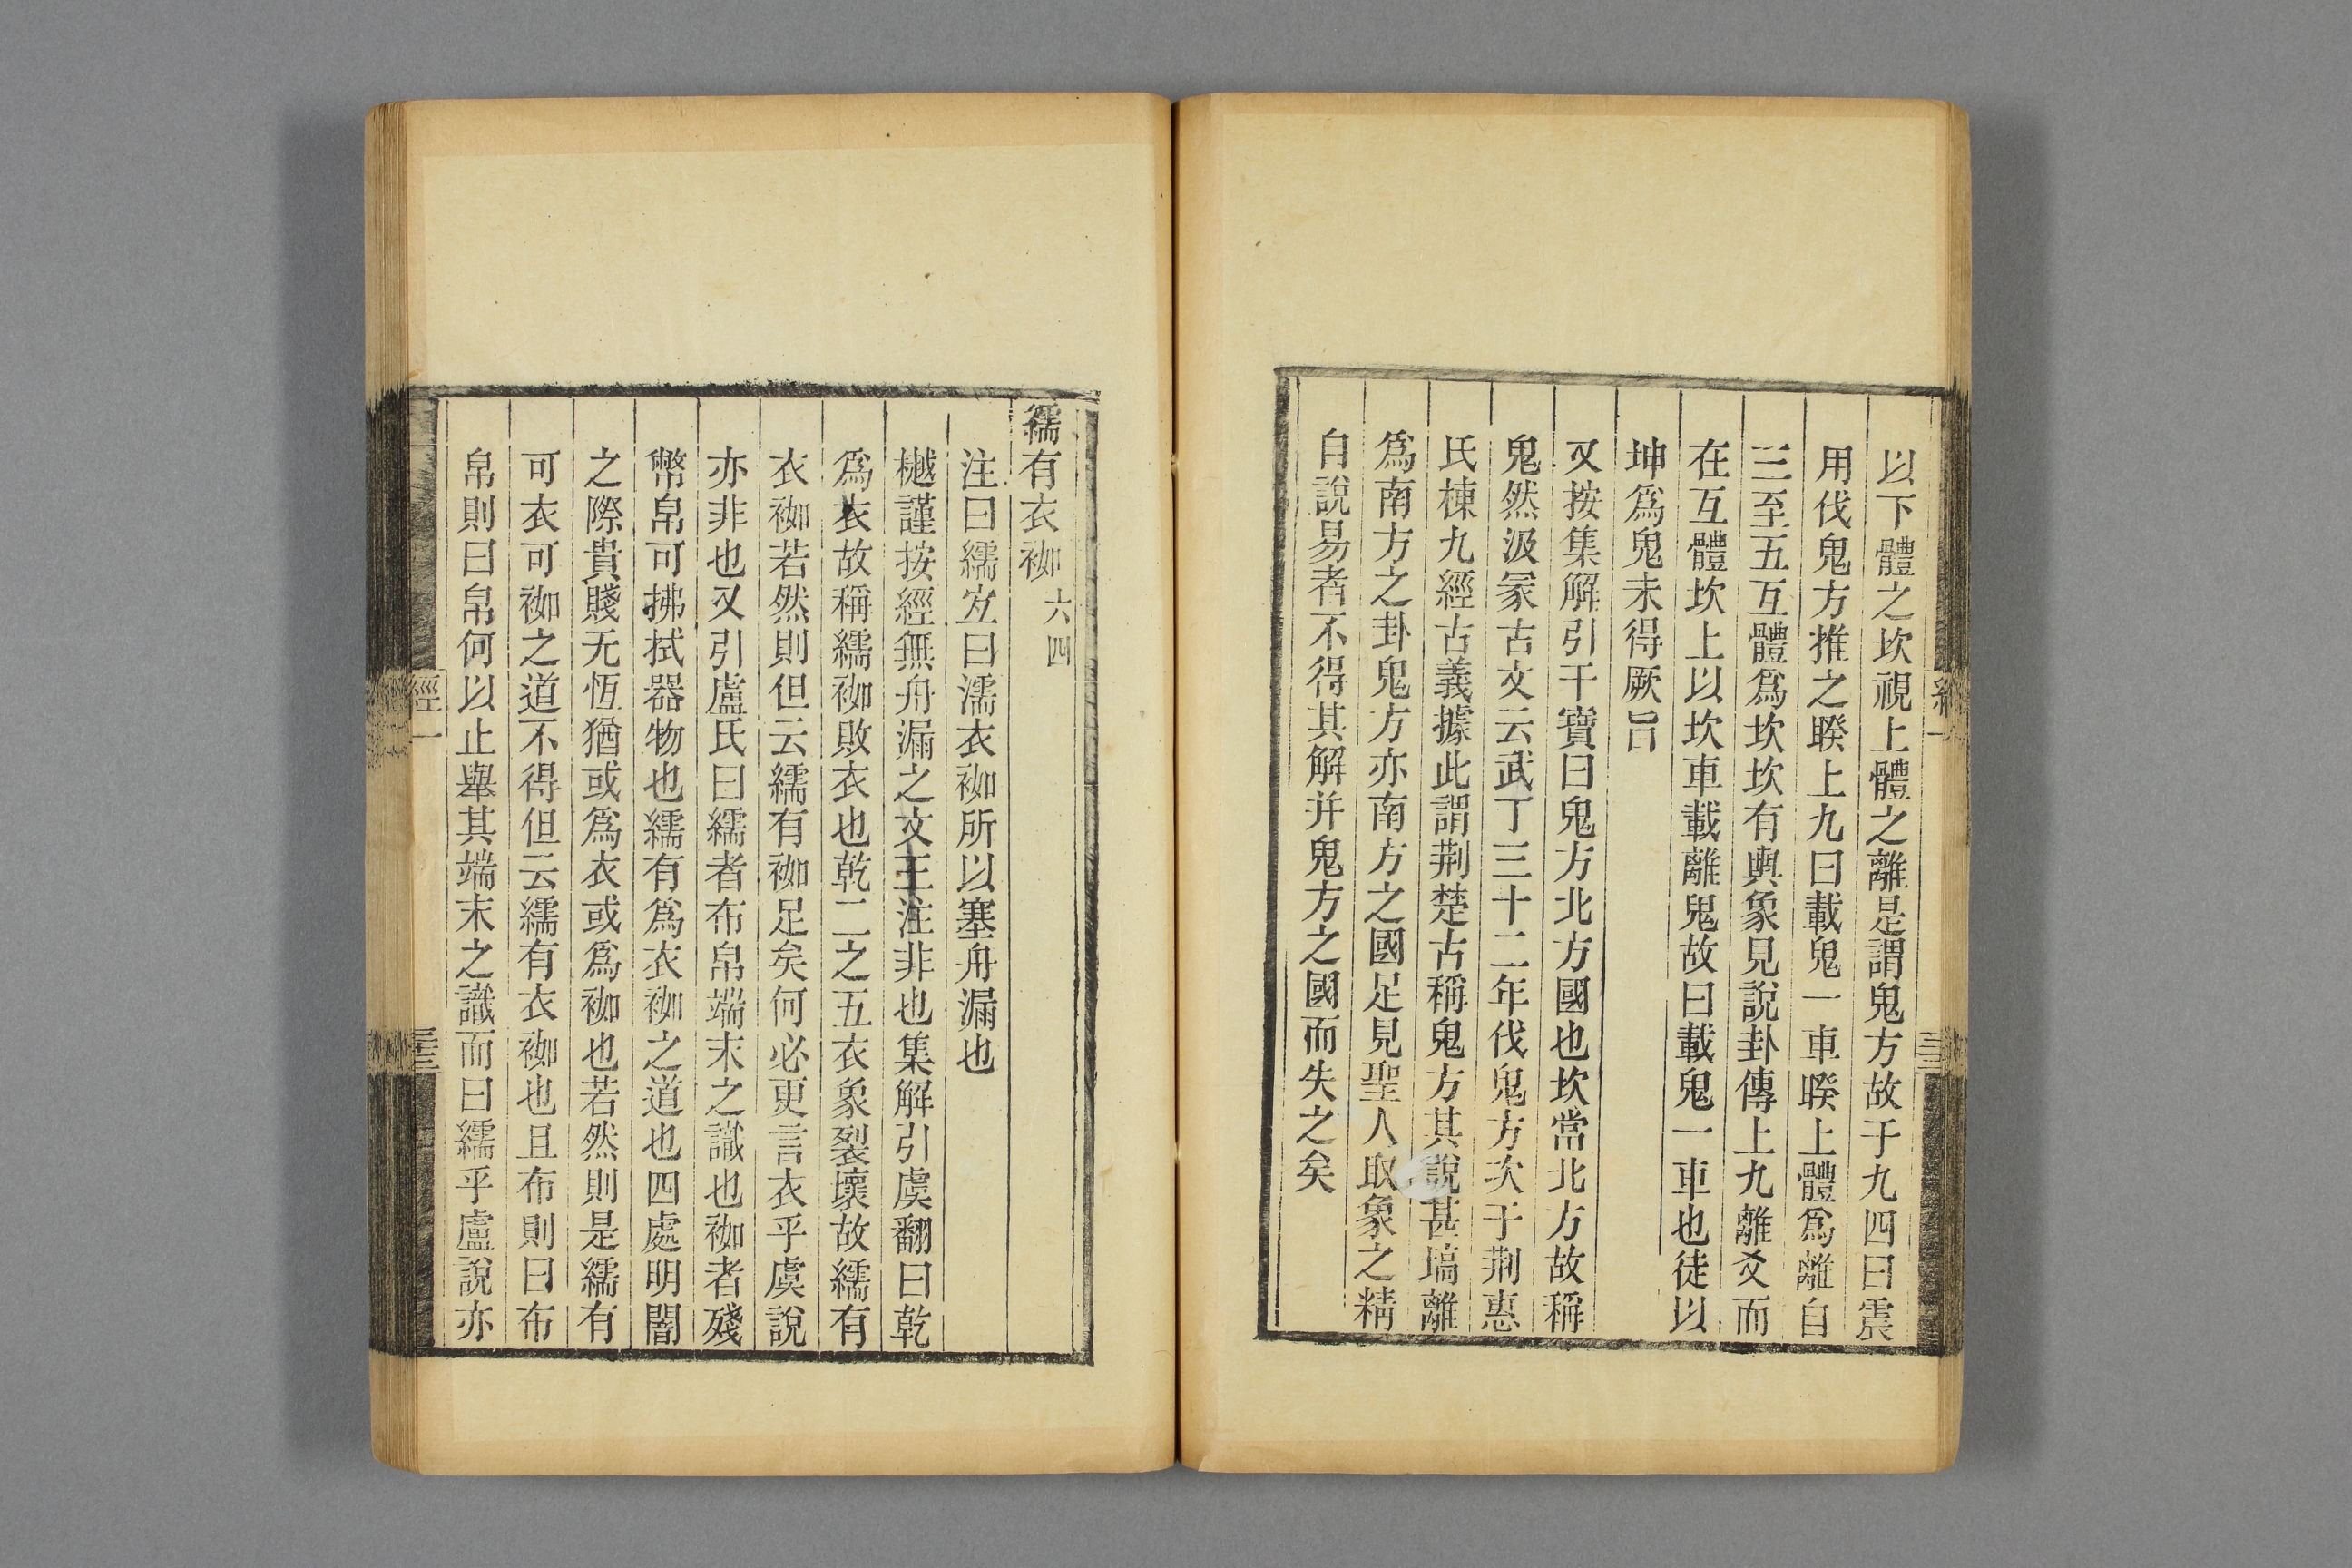 以下體之坎視上體之離是謂鬼方故于九四曰震
用伐鬼方推之睽上九曰載鬼一車睽上體爲離自
三至五互體爲坎坎有輿象見說卦傳上九離爻而
在互體坎上以坎車載離鬼故曰載鬼一車也徒以
坤爲鬼未得厥旨
又按集解引干寶曰鬼方北方國也坎當北方故稱
鬼然汲冢古文云武丁三十二年伐鬼方次于荆惠
氏棟九經古義據此謂荆楚古稱鬼方其說甚塙離
爲南方之卦鬼方亦南方之國足見聖人取象之精
自說易者不得其解并鬼方之國而失之矣
經一
三三
繻有衣袽六四
注曰繻宜曰濡衣袽所以塞舟漏也
樾謹按經無舟漏之文王注非也集解引虞翻曰乾
爲衣故稱繻袽敗衣也乾二之五衣象裂壞故繻有
衣袽若然則但云繻有袽足矣何必更言衣乎虞說
亦非也又引盧氏曰繻者布帛端末之識也袽者殘
幣帛可拂拭器物也繻有爲衣袽之道也四處明闇
之際貴賤无恆猶或爲衣或爲袽也若然則是繻有
可衣可袽之道不得但云繻有衣袽也且布則曰布
帛則曰帛何以止舉其端末之識而曰繻乎盧說亦
經一